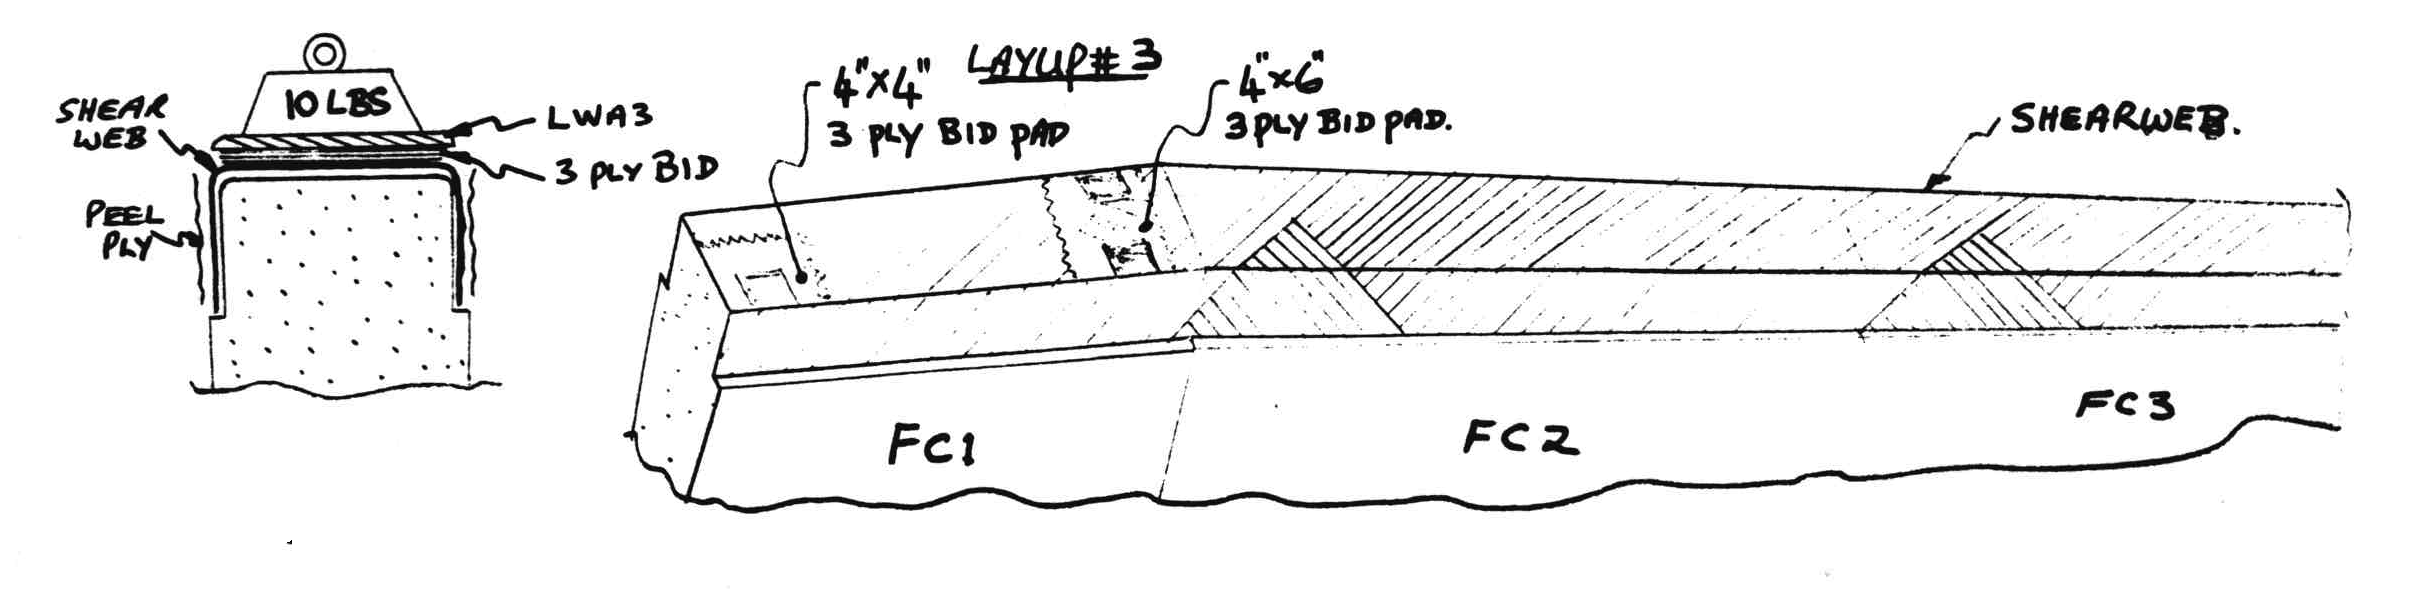 LAYUP# 3
10 LBS
SHEAR
WEB
LWA3
3 PLY BID
PEEL
PLY
4"x4"
3 PLY BID PAD
4"x6"
3 PLY BID PAD.
SHEARWEB.
FC1
FC2
FC3